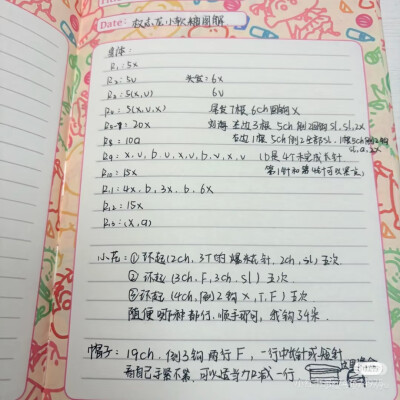 Date: 权志龙小软糖图解
身体:
R1: 5x
R2: 5v 头发: 6x
R3: 5(x,v) 6v
R4: 5(x,v,x) 尾发7根 6ch回钩x
R5-7: 20x 刘海 左边3根 5ch 倒2回钩sl,sl,2x
R8: 10a 右边1根 5ch倒2全部sl,
R9: x,v,b,v,x,v,b,v,x,v (b是4个未完成长针
R10: 15x
R11: 4x,b,3x,b,6x
R12: 15x
R13: (x,a)
小花: ①环起(2ch,3T的爆米花针,2ch,sl)五次
②环起(3ch,F,3ch,sl)五次
③环起(4ch,倒2钩x,T,F)五次
随便哪种都行,顺手即可,我钩34米.
帽子: 19ch,倒3钩两行F,一行中长针或短针
看自己手紧不紧,可以适当加减一行.